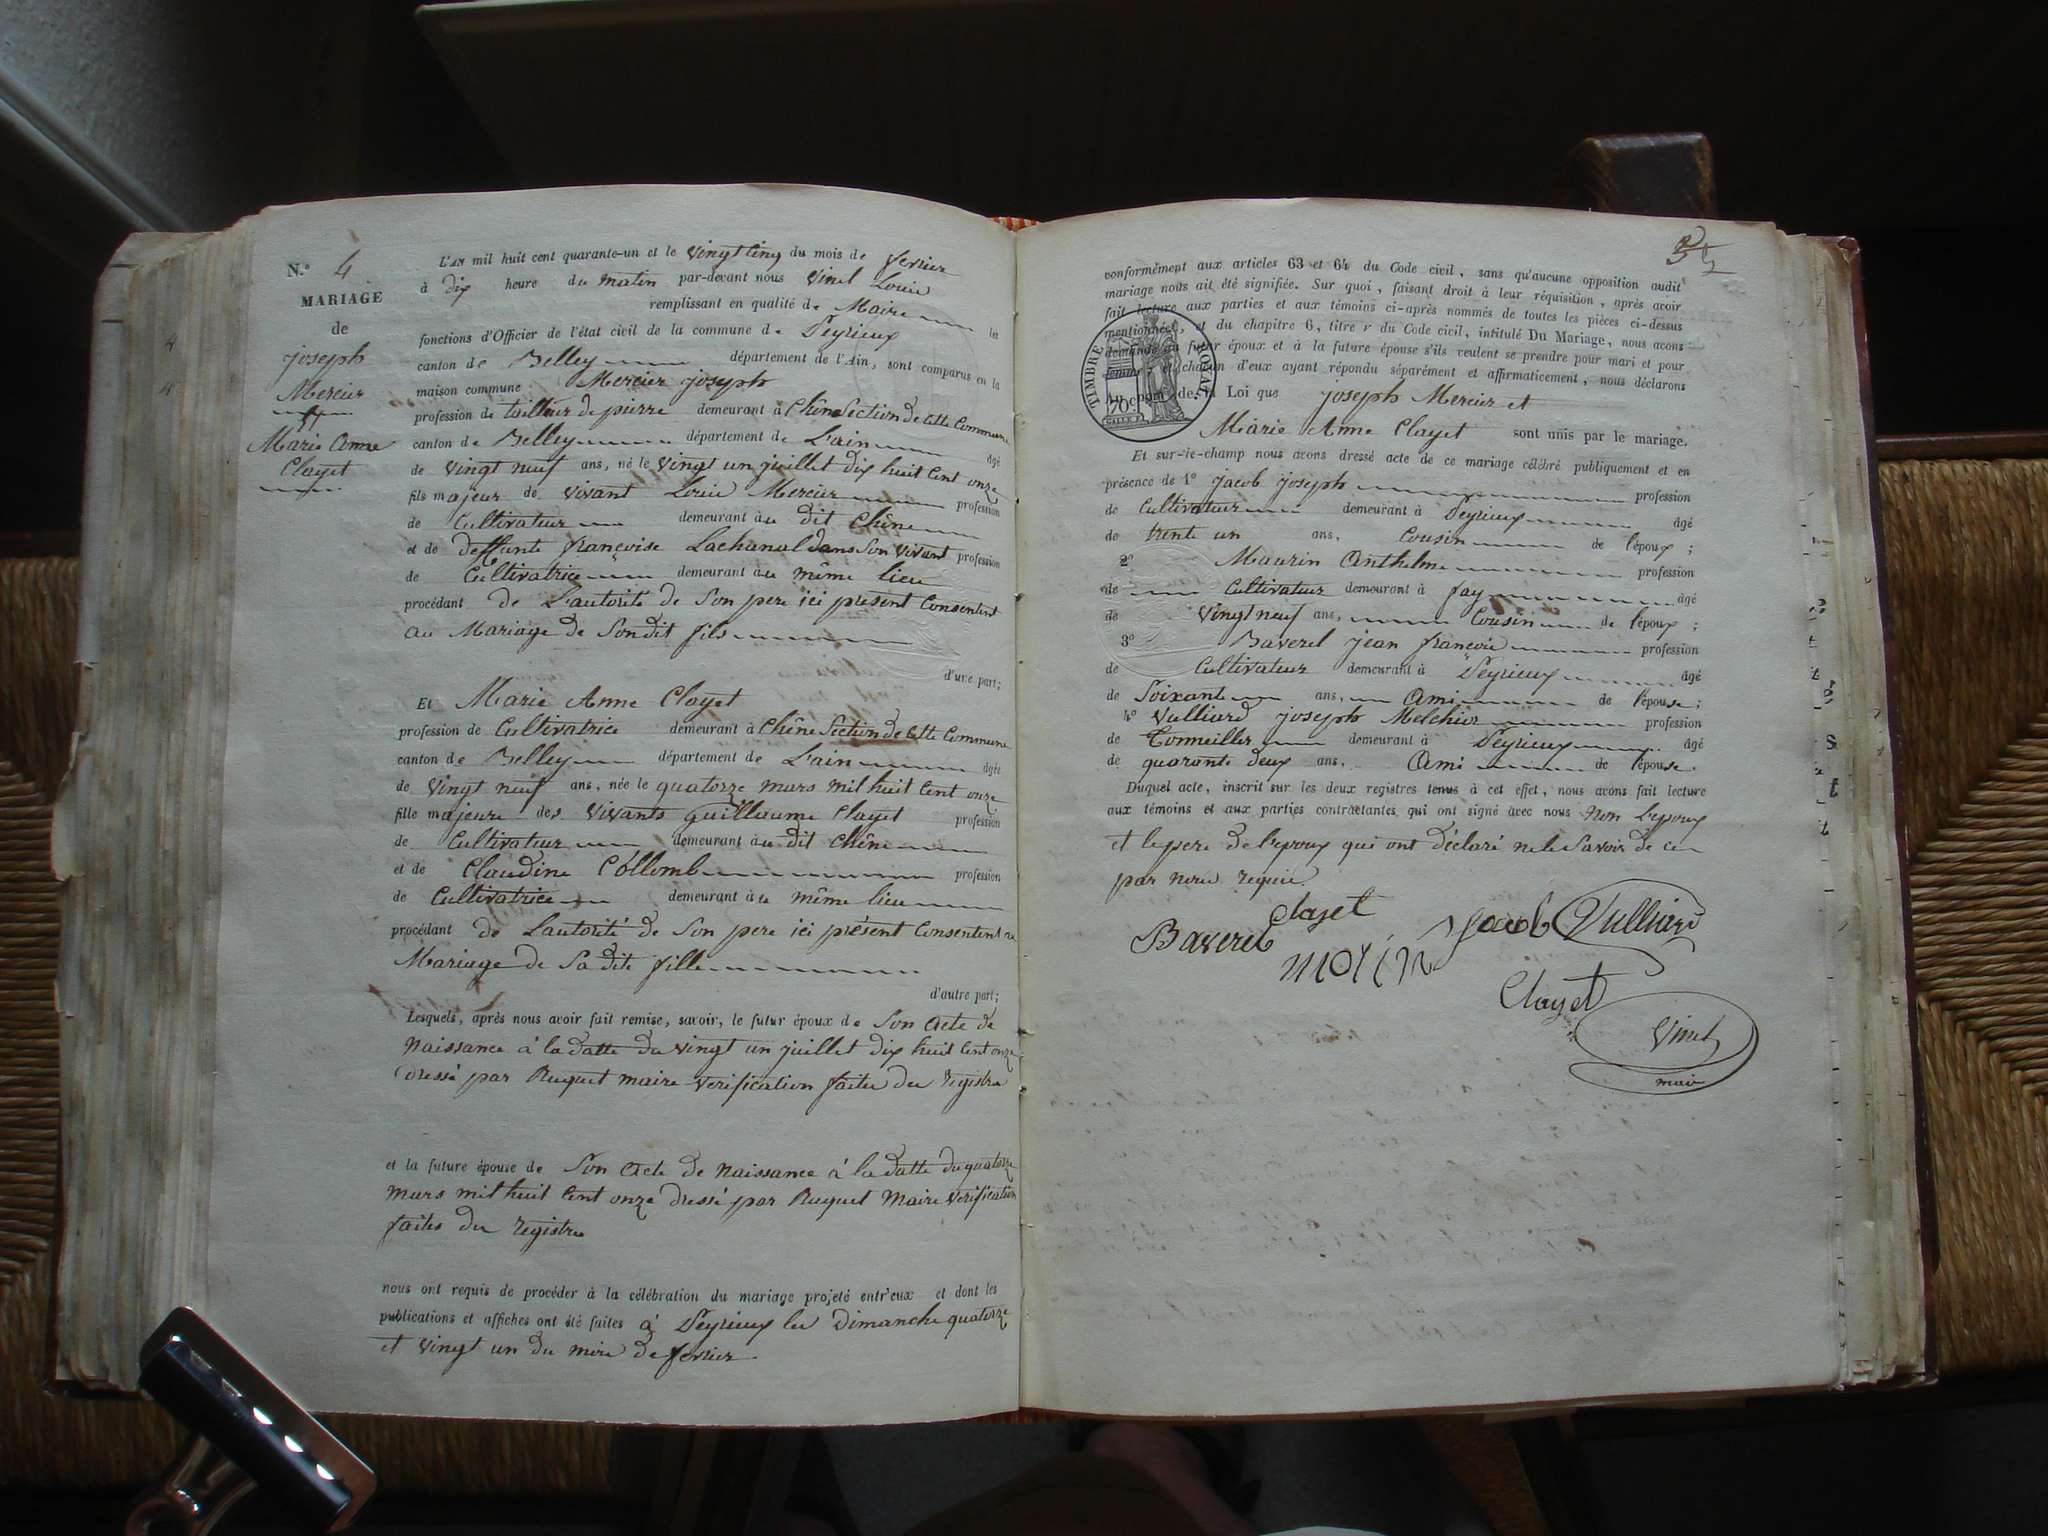 N.º 4
MARIAGE
de
joseph
Mercier
et
Marie Anne
Clayet
L'AN mil huit cent quarante-un et le vingt cinq du mois de fevrier
à dix heure du matin par-devant nous Vinet Louis
remplissant en qualité de Maire les
fonctions d'Officier de l'état civil de la commune de Peyrieux
canton de Belley département de l'Ain, sont comparus en la
maison commune Mercier joseph
profession de tailleur de pierre demeurant à Chêne Section de cette Commune
canton de Belley département de L'ain âgé
de vingt neuf ans, né le vingt un juillet dix huit cent onze
fils majeur de vivant Louis Mercier profession
de Cultivateur demeurant à u dit Chêne
et de deffunte françoise Lachanal dans Son vivant profession
de Cultivatrice demeurant à u même lieu
procédant de L'autorité de Son pere ici présent Consentent
au Mariage de Sondit fils
d'une part;
Et Marie Anne Clayet
profession de Cultivatrice demeurant à Chêne Section de Cette Commune
canton de Belley département de L'ain âgée
de vingt neuf ans, née le quatorze mars mil huit Cent onze
fille majeure des vivants guillaume Clayet profession
de Cultivateur demeurant à u dit Chêne
et de Claudine Collomb profession
de Cultivatrice demeurant à u même lieu
procédant de L'autorité de Son pere ici présent Consentent au
Mariage de Sa dite fille
d'autre part;
Lesquels, après nous avoir fait remise, savoir, le futur époux de Son acte de
Naissance à la datte du vingt un juillet dix huit Cent onze
dressé par Ruquet maire verification faites du registre
et la future épouse de Son acte de Naissance à la datte du quatorze
mars mil huit Cent onze dressé par Ruquet Maire verification
faites du registre
nous ont requis de procéder à la célébration du mariage projeté entr'eux et dont les
publications et affiches ont été faites à Peyrieux les dimanche quatorze
et vingt un du mois de fevrier
conformément aux articles 63 et 64 du Code civil, sans qu'aucune opposition audit
mariage nous ait été signifiée. Sur quoi, faisant droit à leur réquisition, après avoir
fait lecture aux parties et aux témoins ci-après nommés de toutes les pièces ci-dessus
mentionnées, et du chapitre 6, titre v du Code civil, intitulé Du Mariage, nous avons
demandé au futur époux et à la future épouse s'ils veulent se prendre pour mari et pour
femme; et chacun d'eux ayant répondu séparément et affirmativement, nous déclarons
au nom de la Loi que joseph Mercier et
TIMBRE ROYAL
70 c
Marie Anne Clayet sont unis par le mariage.
Et sur-le-champ nous avons dressé acte de ce mariage célébré publiquement et en
présence de 1º jacob joseph profession
de Cultivateur demeurant à Peyrieux âgé
de trente un ans, Cousin de l'époux;
2º Maurin Anthelme profession
de Cultivateur demeurant à fay âgé
de vingt neuf ans, Cousin de l'époux;
3º Baverel jean françois profession
de Cultivateur demeurant à Peyrieux âgé
de Soixante ans, Ami de l'épouse;
4º Vulliard joseph Melchior profession
de Tonneillier demeurant à Peyrieux âgé
de quarante deux ans, Ami de l'épouse.
Duquel acte, inscrit sur les deux registres tenus à cet effet, nous avons fait lecture
aux témoins et aux parties contractantes qui ont signé avec nous Non L'epoux
et le pere de l'epoux qui ont déclaré ne le Savoir de ce
par nous requis.
Clayet
Baverel
jacob
Vulliard
Clayet
Vinet
maire